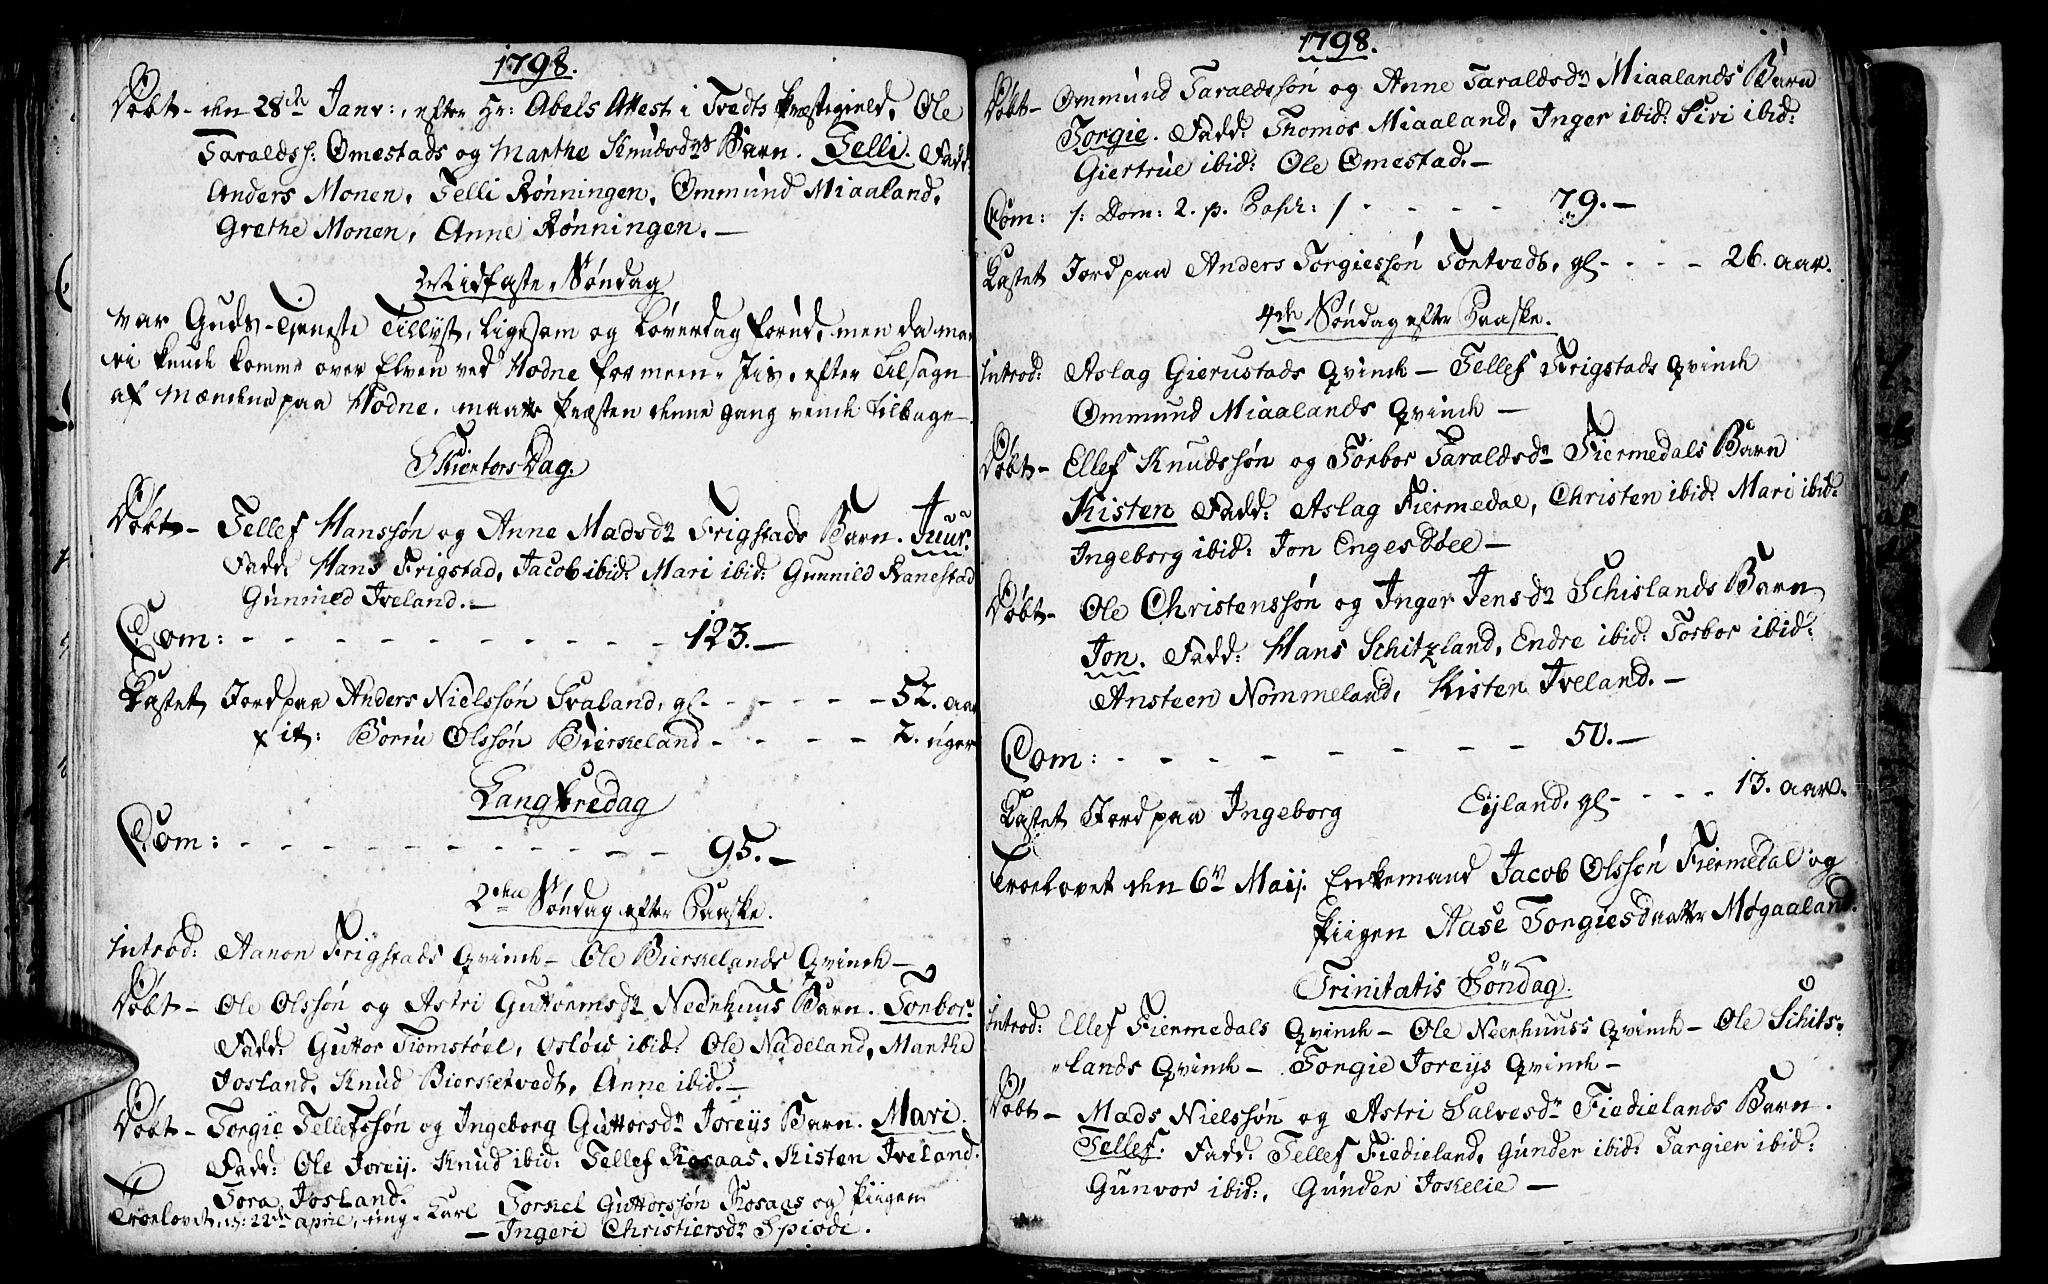 1798.
Døbt - den 28de Janr:, efter Hr: Abels Attest i Tvedts Præstegield, Ole
Taraldss: Omestads og Marthe Knudsdrs Barn. Telli. Fadd:
Anders Monen, Telli Rønningen, Ommund Miaaland,
Grethe Monen, Anne Rønningen. -
Midfaste Søndag
var Guds-Tieneste Tillyst, ligesom og Løverdag forud, men da man
ei kunde komme over Elven ved Hodne formeen. Iis, efter Tilsagn
af Mændene paa Hodne, maatte Præsten denne gang vende tilbage.
Skiertors Dag.
Døbt - Tellef Hanssøn og Anne Madsdr Frigstads Barn. Juur.
Fadd: Hans Frigstad, Jacob ibid: Mari ibid: Gunnild Ranestad
Gunnild Iveland. -
Com: - - - - - - - - - - - 123. -
Kastet Jord paa Anders Nielssøn Svaland, gl - - - - - 52. aar
it: Boriu Olssøn Bierkeland - - - - 2. uger
Langfredag
Com: - - - - - - - - - - - 95. -
2den Søndag efter Paaske.
Introd: Aanon Frigstads Qvinde - Ole Bierkelands Qvinde -
Døbt - Ole Olssøn og Astri Guttormsdr Neerhuus Barn. Torbor.
Fadd: Guttor Tiomstøel, Osløu ibid: Ole Nadeland, Marthe
Josland, Knud Bierketvedt, Anne ibid. -
Døbt - Torgie Tellefssøn og Ingeborg Guttorsdr Joreys Barn. Mari.
Fadd: Ole Jorey. Knud ibid: Tellef Kosaas, Kisten Iveland.
Tora Josland.
Troelovet, d: 22de April, ung-Karl Torkel Guttorssøn Kosaas og Piigen
- Ingeri Christiersdr Spiode.
1798.
Døbt - Ommund Taraldssøn og Anne Taraldsdr Miaalands Barn
Torgie. Fadd: Thomos Miaaland, Inger ibid: Siri ibid:
Giertrue ibid: Ole Omestad. -
Com: /: Dom: 2. p. Pasch: / - - - - - 79. -
Kastet Jord paa Anders Torgiessøn Tortvedt, gl - - - - 26. aar.
4de Søndag efter Paaske.
Introd: Aslag Gierustads Qvinde - Tellef Frigstads Qvinde
Ommund Miaalands Qvinde -
Døbt - Ellef Knudssøn og Torbor Taraldsdr Fiermedals Barn
Kisten Fadd: Aslag Fiermedal, Christen ibid: Mari ibid:
Ingeborg ibid: Jon Engesdøel -
Døbt - Ole Christenssøn og Inger Jensdr Schislands Barn
Jon. Fadd: Hans Schitzland, Endre ibid: Torbor ibid:
Ansteen Nommeland, Kisten Iveland. -
Com: - - - - - - - - 50. -
Kastet Jord paa Ingeborg Eijland, gl - - - - 13. aar.
Troelovet den 6te Maij. Enkemand Jacob Olssøn Fiermedal og
Piigen Aase Torgiesdaatter Møgaaland.
Trinitatis Søndag.
Introd: Ellef Fiermedals Qvinde - Ole Neerhuuss Qvinde - Ole Schits-
lands Qvinde - Torgie Joreys Qvinde -
Døbt - Mads Nielssøn og Astri Salvesdr Fiedielands Barn.
Tellef. Fadd: Tellef Fiedieland, Gunder ibid: Targier ibid:
Gunvor ibid:, Gunder Joskelie -